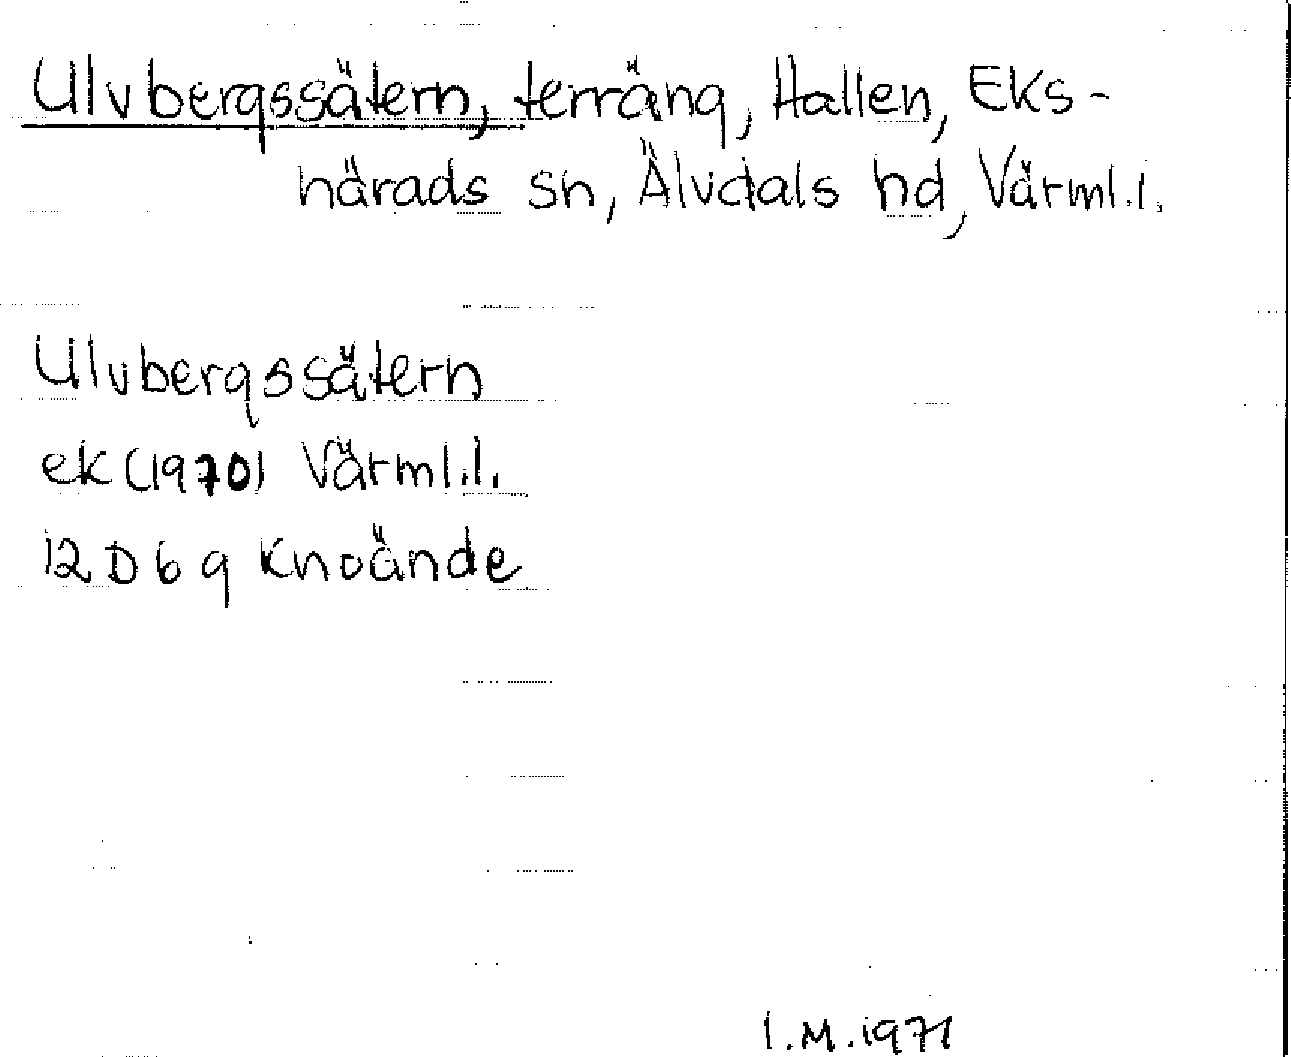 Ulvbergssätern, terräng, Hallen, Eks-
härads sn, Älvdals hd, Värml.l.
Ulvbergssätern
ek (1970) Värml.l.
12 D 6 g Knoände
I.M.1971